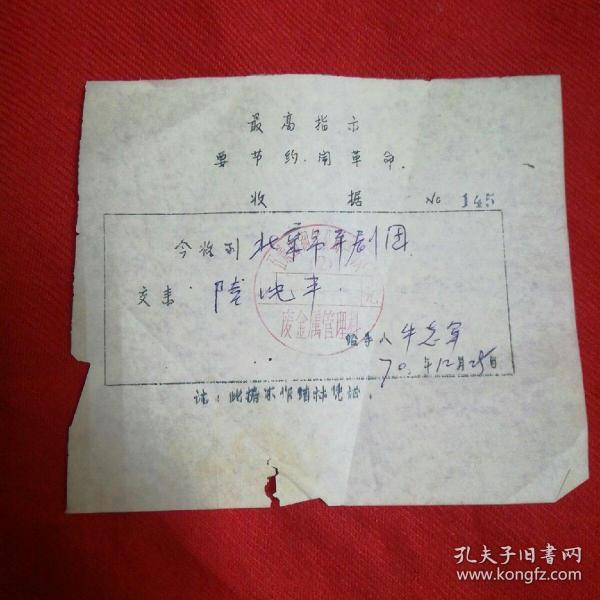 最高指示
要节约闹革命.
收 据 No 145
今收到 北京市平剧团
交来 陆吨半.
废金属管理科
经手人 牛志军
70年12月25日
注：此据不作销材凭证.
孔夫子旧书网
www.kongfz.com